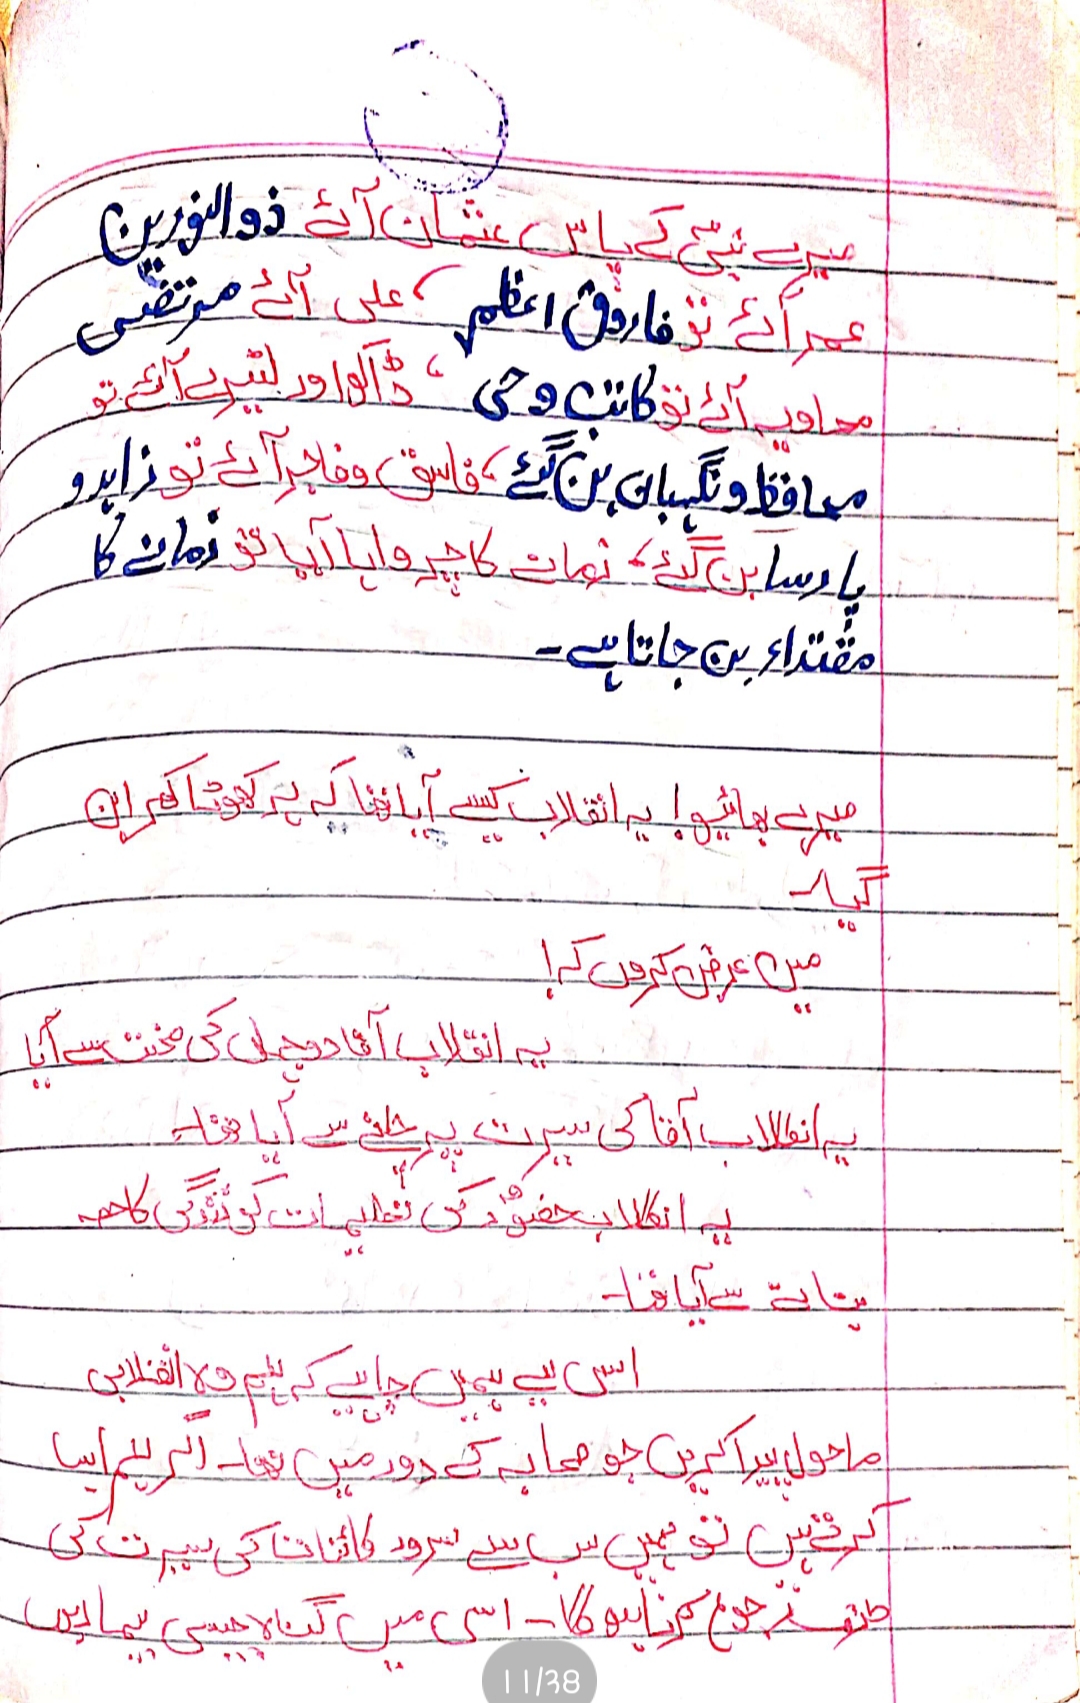 میرے نبیؐ کے پاس عثمان آئے ذوالنورین
عمر آئے تو فاروق اعظم، علی آئے مرتضیٰ
معاویہ آئے تو کاتب وحی، ڈاکو اور لٹیرے آئے تو
محافظ و نگہبان بن گئے، فاسق و فاجر آئے تو زاہد و
پارسا بن گئے، زمانے کا چرواہا آیا تو زمانے کا
مقتداء بن جاتا ہے۔
میرے بھائیو! یہ انقلاب کیسے آیا تھا کہ ہر کھوٹا کھرا بن
گیا۔
میں عرض کروں کہ!
یہ انقلاب آقا دوجہاں کی محنت سے آیا
یہ انقلاب آقا کی سیرت پر چلنے سے آیا تھا۔
یہ انقلاب حضورؐ کی تعلیمات کو زندگی کا حصہ
بنانے سے آیا تھا۔
اسی لیے ہمیں چاہیے کہ ہم وہ انقلابی
ماحول پیدا کریں جو صحابہ کے دور میں تھا۔ اگر ہم ایسا
کرتے ہیں تو ہمیں سب سے سرور کائنات کی سیرت کی
طرف رجوع کرنا ہوگا۔ اسی میں گناہ جیسی بیماریوں
11/38